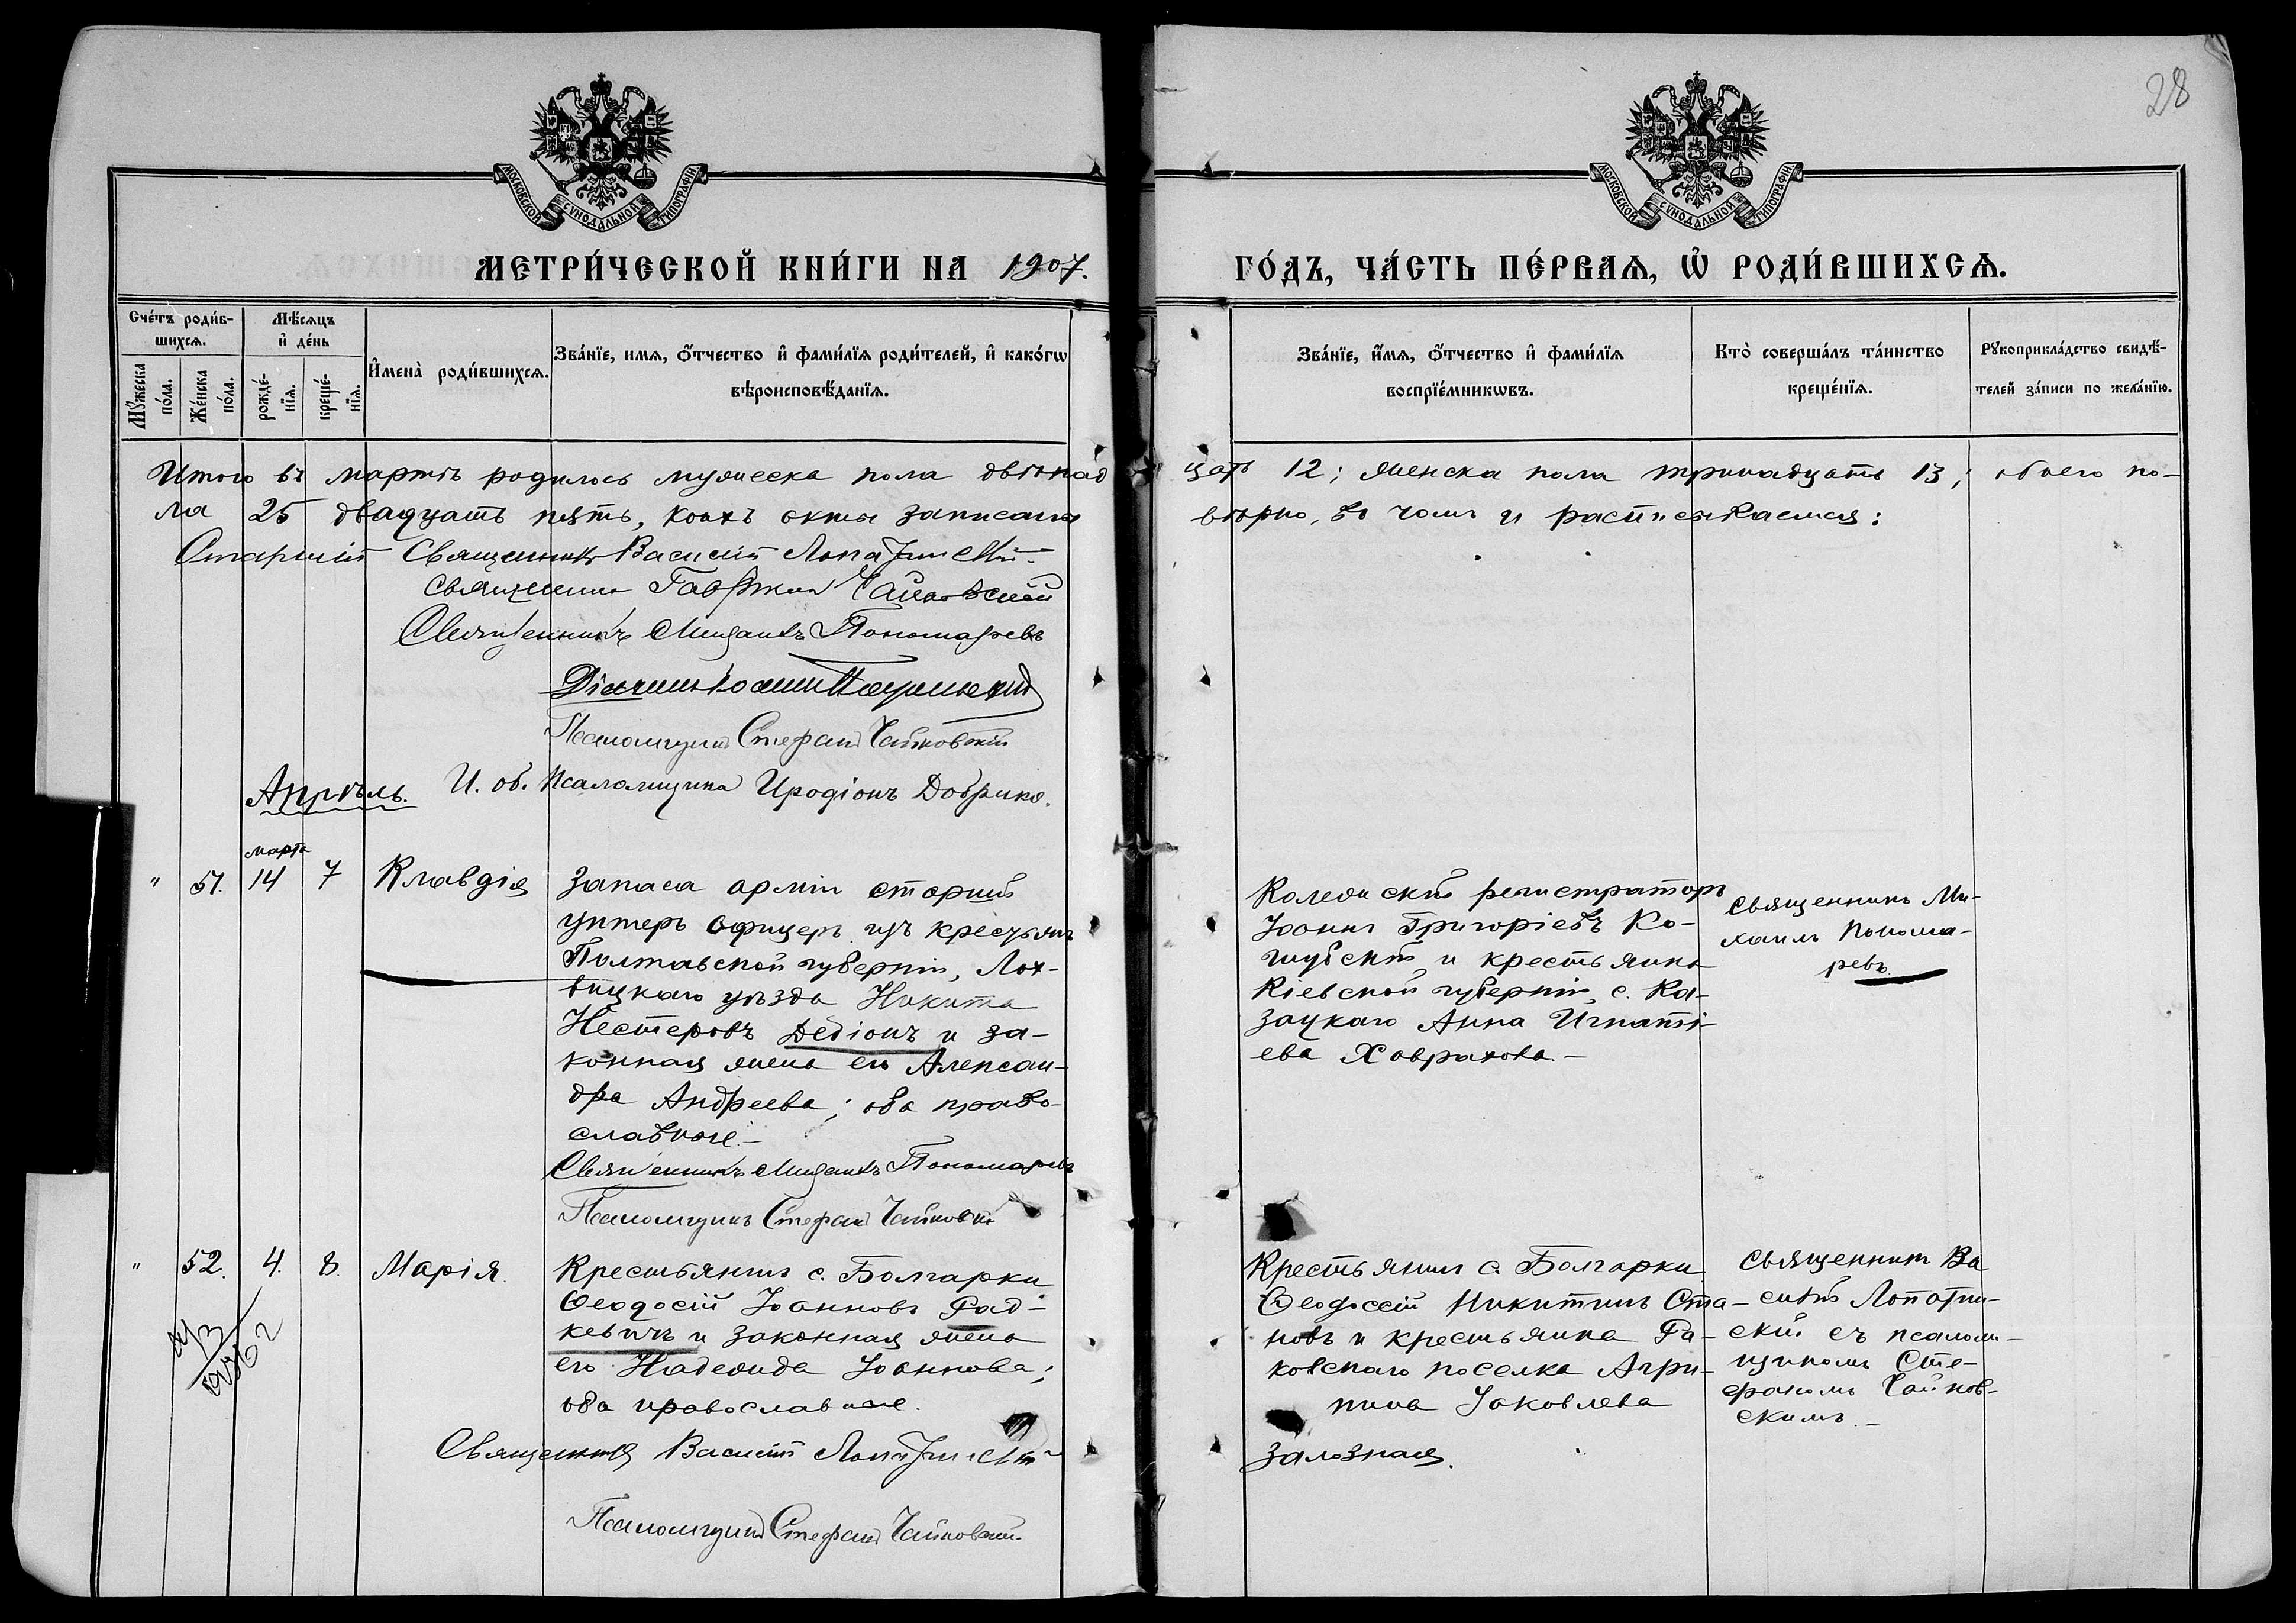 28
МОСКОВСКОЙ СѴНОДАЛЬНОЙ ТИПОГРАФІИ
МОСКОВСКОЙ СѴНОДАЛЬНОЙ ТИПОГРАФІИ
МЕТРИ́ЧЕСКОЙ КНИ́ГИ НА 1907.
ГО́ДЪ, ЧА́СТЬ ПЕ́РВАѦ, Ѡ҆ РОДИ́ВШИХСѦ.
Сче́тъ роди́в-
шихсѧ.
Мѣ́сѧцъ
и҆ де́нь
Мꙋ́жеска
по́ла.
Же́нска
по́ла.
рожде́-
нїѧ.
креще́-
нїѧ.
И҆мена̀ роди́вшихсѧ.
Зва́нїе, имѧ, ѻ҆́тчество и҆ фами́лїѧ роди́телей, и҆ како́гѡ
вѣроисповѣ́данїѧ.
Зва́нїе, и҆́мѧ, ѻ҆́тчество и҆ фами́лїѧ
воспрїе́мникѡвъ.
Кто̀ соверша́лъ та́инство
креще́нїѧ.
Рꙋкоприкла́дство свидѣ́-
телей за́писи по жела́нїю.
Итого въ мартѣ родилось мужеска пола двѣнад
цать 12; женска пола тринадцать 13; обоего по-
ла 25 двадцать пять, коихъ акты записаны
вѣрно, въ чемъ и расписываемся:
Старшій Священникъ Василій Лопатинскій
Священникъ Гавріилъ Чайковскій
Священникъ Михаилъ Пономаревъ
Діаконъ Іоаннъ
Псаломщикъ Стефанъ Чайковскій
И. об. Псаломщика Иродіонъ Добрико.
Апрѣль.
марта
" 51. 14 7 Клавдія
Запаса арміи старшій
унтеръ офицеръ изъ крестьянъ
Полтавской губерніи, Лох-
вицкаго уѣзда Никита
Нестеровъ Дебіонъ и за-
конная жена его Алексан-
дра Андреева; оба право-
славные.-
Священникъ Михаилъ Пономаревъ
Псаломщикъ Стефанъ Чайковскій
Коллежскій регистраторъ
Іоаннъ Григоріевъ Ко-
шубскій и крестьянка
Кіевской губерніи, с. Ка-
зацкаго Анна Игнаті-
ева Ховрахова.-
Священникъ Ми-
хаилъ Понома-
ревъ.
" 52. 4. 8. Марія.
Крестьянинъ с. Болгарки
Ѳеодосій Іоанновъ Рад-
кевичъ и законная жена
его Надежда Іоаннова;
оба православные.
Священникъ Василій Лопатинскій
Псаломщикъ Стефанъ Чайковскій.
Крестьянинъ с. Болгарки
Ѳеодосій Никитинъ Ста-
новъ и крестьянка Ра-
ковскаго поселка Агри-
пина Іаковлева
Залозная.
Священникъ Ва
силій Лопатин-
скій съ псалом-
щикомъ Сте-
фаномъ Чайков-
скимъ.-